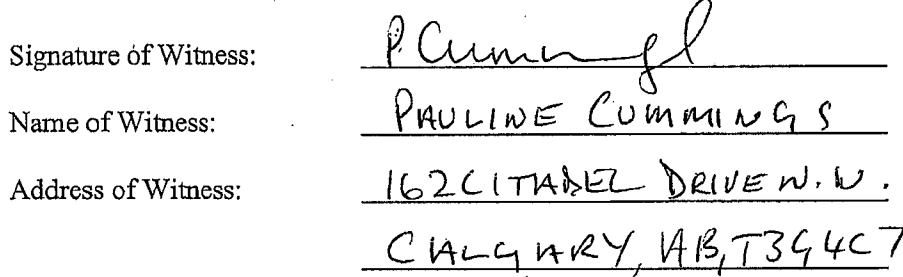 Signature of Witness: P. Cummings
Name of Witness: PAULINE CUMMINGS
Address of Witness: 162 CITADEL DRIVE N.W.
CALGARY, AB, T3G4C7